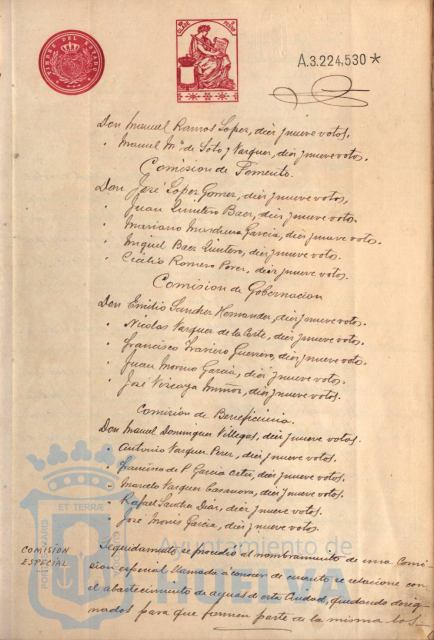 TIMBRE DEL ESTADO
A.3.224,530*
Don Manuel Ramos Lopez, diez y nueve votos.
" Manuel Mª de Soto y Vazquez, diez y nueve votos.
Comision de Fomento.
Don José Lopez Gomez, diez y nueve votos,
" Juan Quintero Baez, diez y nueve votos.
" Mariano Marchena Garcia, diez y nueve votos.
" Miguel Baez Quintero, diez y nueve votos.
" Cecilio Romero Perez, diez y nueve votos.
Comision de Gobernacion
Don Emilio Sanchez Hernandez, diez y nueve votos.
" Nicolas Vazquez de la Corte, diez y nueve votos.
" Francisco Guerrero, diez y nueve votos.
" Juan Moreno Garcia, diez y nueve votos.
" José Vizcaya Muñoz, diez y nueve votos.
Comision de Beneficencia.
Don Manuel Dominguez Villegas, diez y nueve votos.
" Antonio Vazquez Perez, diez y nueve votos.
" Francisco de P. Garcia diez y nueve votos.
" Marcelo Vazquez Casanova, diez y nueve votos.
" Rafael Sanchez Diaz, diez y nueve votos.
" José Garcia, diez y nueve votos.
COMISIÓN
ESPECIAL
Seguidamente, se procedió al nombramiento de una Comi-
sion especial llamada á conocer de cuanto se relacione con
el abastecimiento de aguas de esta Ciudad, quedando desig-
nados para que formen parte de la misma los
PORTUS MARIS ET TERRÆ
Ayuntamiento de
HUELVA